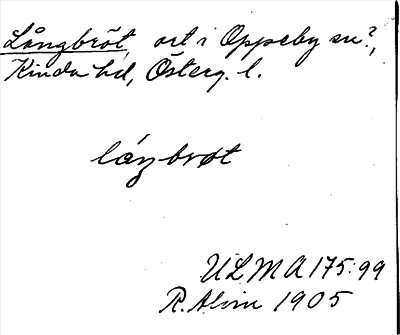 Långbröt, ort i Oppeby sn?,
Kinda hd, Österg. l.
låŋbrøt
ULMA 175:99
R. Alvin 1905